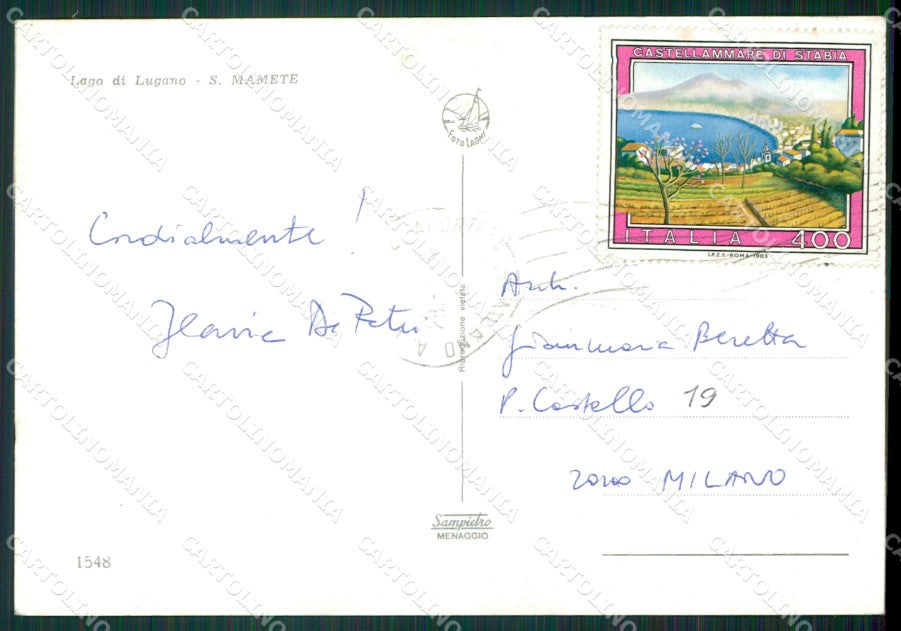 Lago di Lugano - S. MAMETE
FOTO LAGHI
CASTELLAMMARE DI STABIA
ITALIA 400
I.P.Z.S.-ROMA-1985
Cordialmente !
Flavia De Petri
Riproduzione vietata
Arch.
Gianmaria Beretta
P. Castello 19
20100 MILANO
Sampietro
MENAGGIO
1548
CARTOLINOMANIA